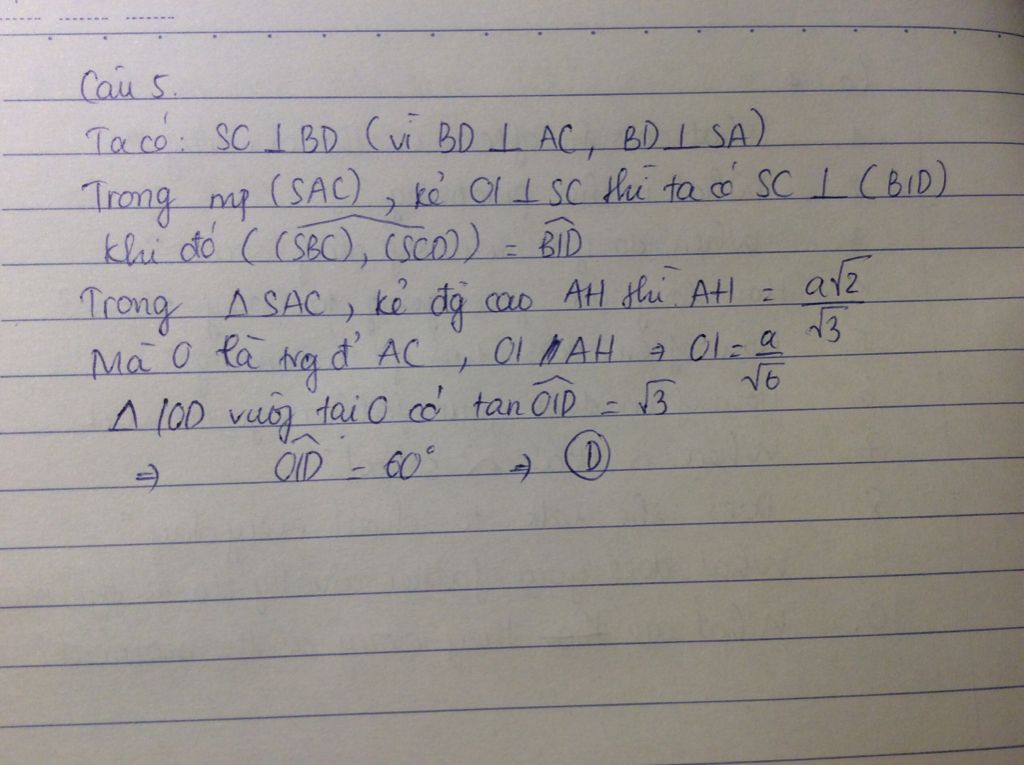 Câu 5.
Ta có: SC ⊥ BD (vì BD ⊥ AC, BD ⊥ SA)
Trong mp (SAC), kẻ OI ⊥ SC thì ta có SC ⊥ (BID)
Khi đó ((SBC), (SCD))^ = BID^
Trong Δ SAC, kẻ đg cao AH thì AH = a√2/√3
Mà O là trg đ' AC, OI // AH ⇒ OI = a/√6
Δ IOD vuông tại O có tan OID^ = √3
⇒ OID^ = 60° ⇒ D